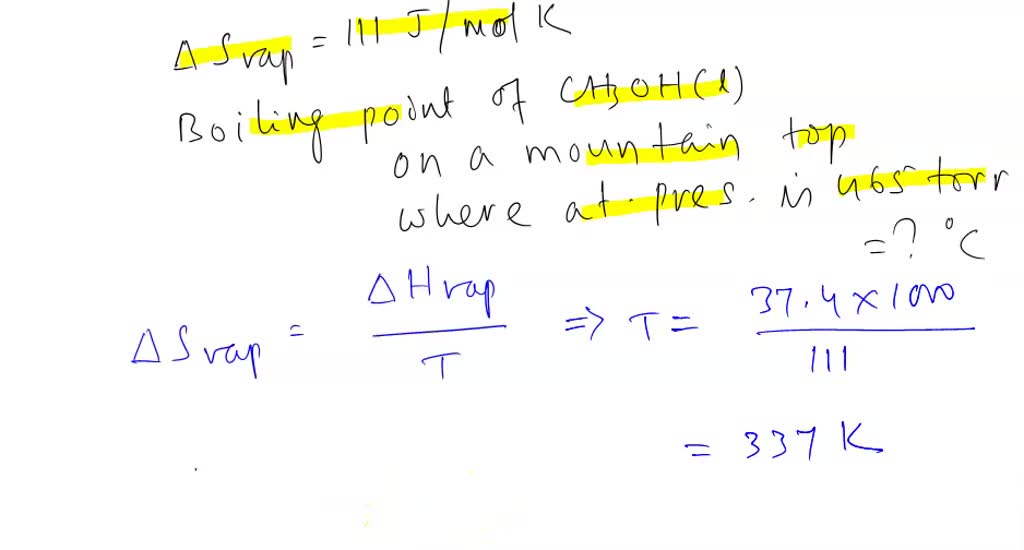 Δ Svap = 111 J/mol K
Boiling point of CH3OH(l)
on a mountain top
where at. pres. is 465 torr
= ? °C
Δ Svap = Δ Hvap / T => T = 37.4 x 1000 / 111
= 337 K